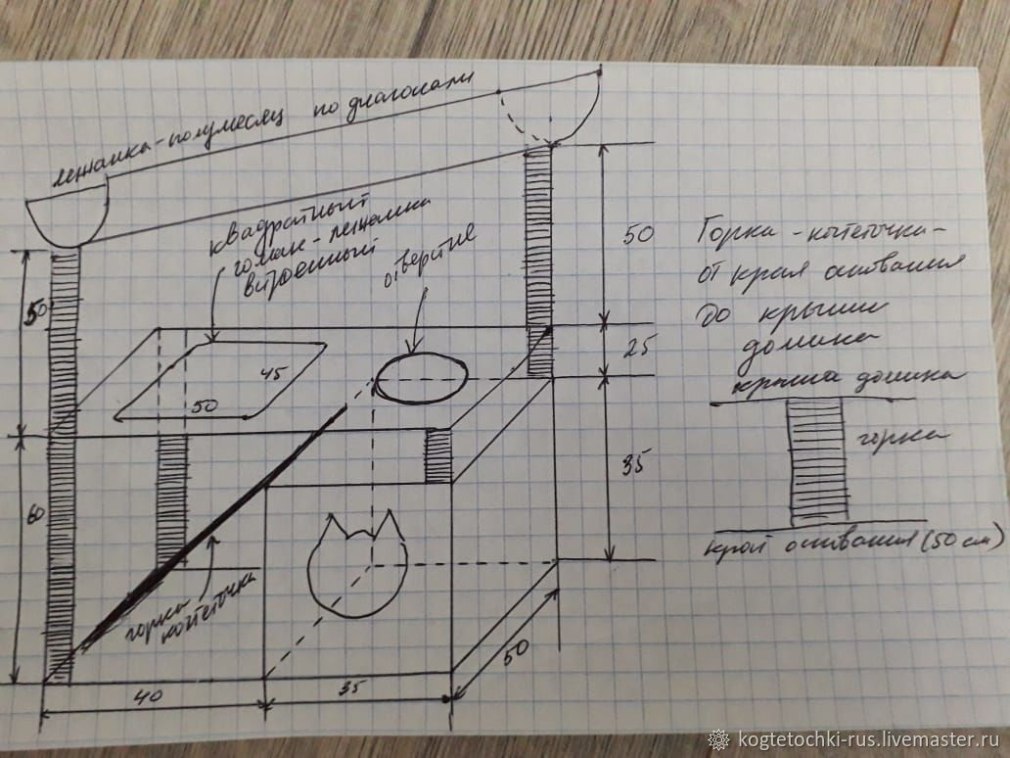 лежанка-полумесяц по диагонали
квадратный
гамак-лежанка
встроенный
отверстие
50
50
Горка-когтеточка-
от края основания
до крыши
домика
25
45
50
крыша домика
горка
35
60
край основания (50 см)
горка
когтеточка
50
40
35
kogtetochki-rus.livemaster.ru